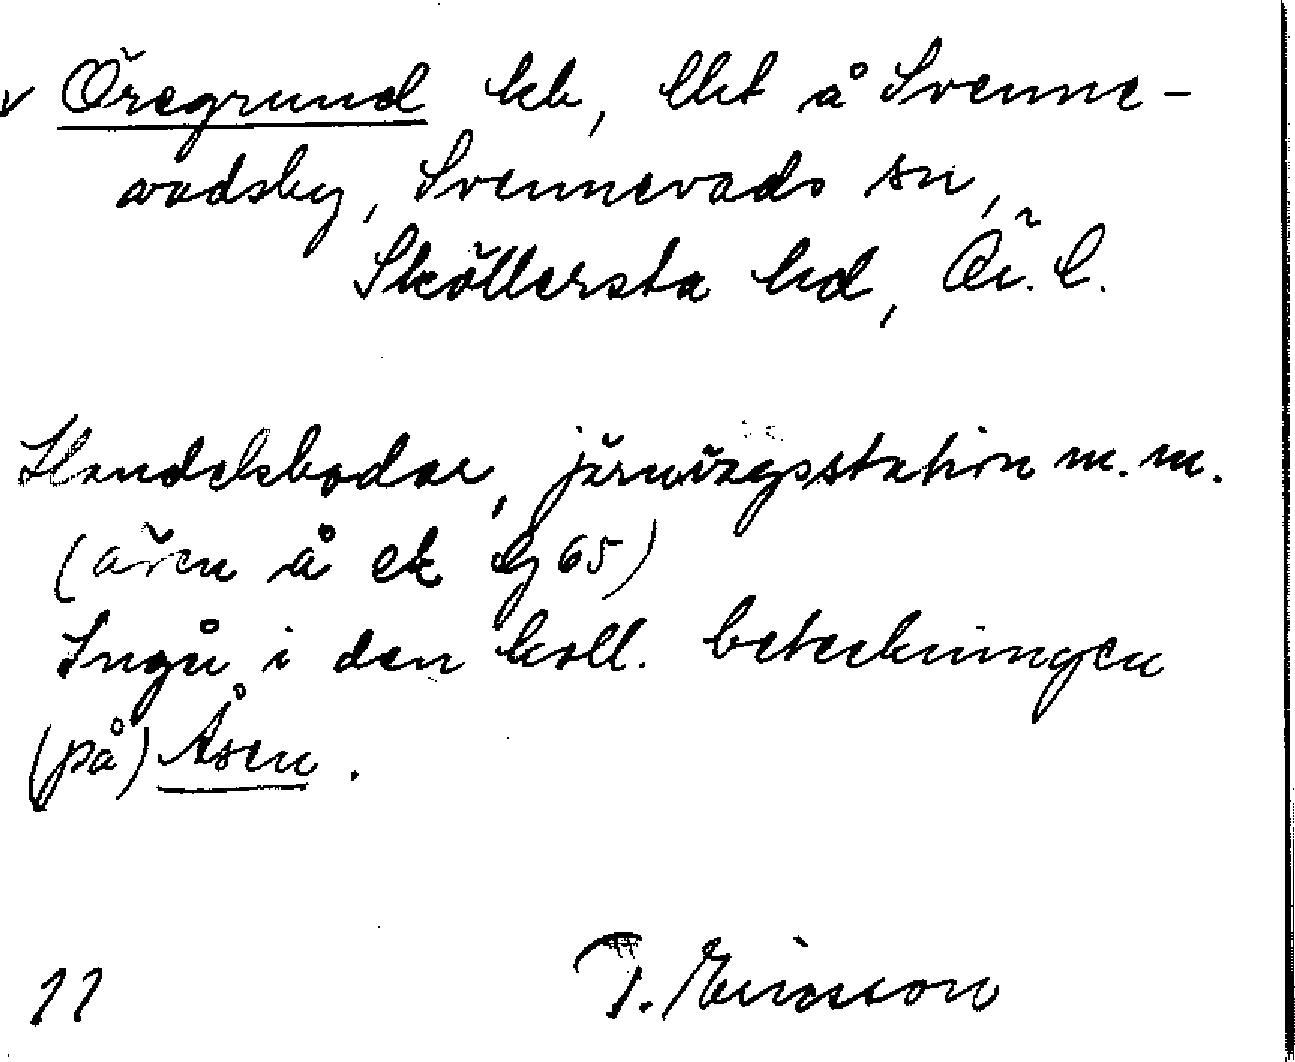 v Öregrund lb, lht å Svenne-
vadsby, Svennevads sn,
Sköllersta hd, Ör. l.
Handelsbodar, järnvägsstation m. m.
(även å ek bg 65)
Ingå i den koll. beteckningen
(på) Åsen.
11 T. Ericsson